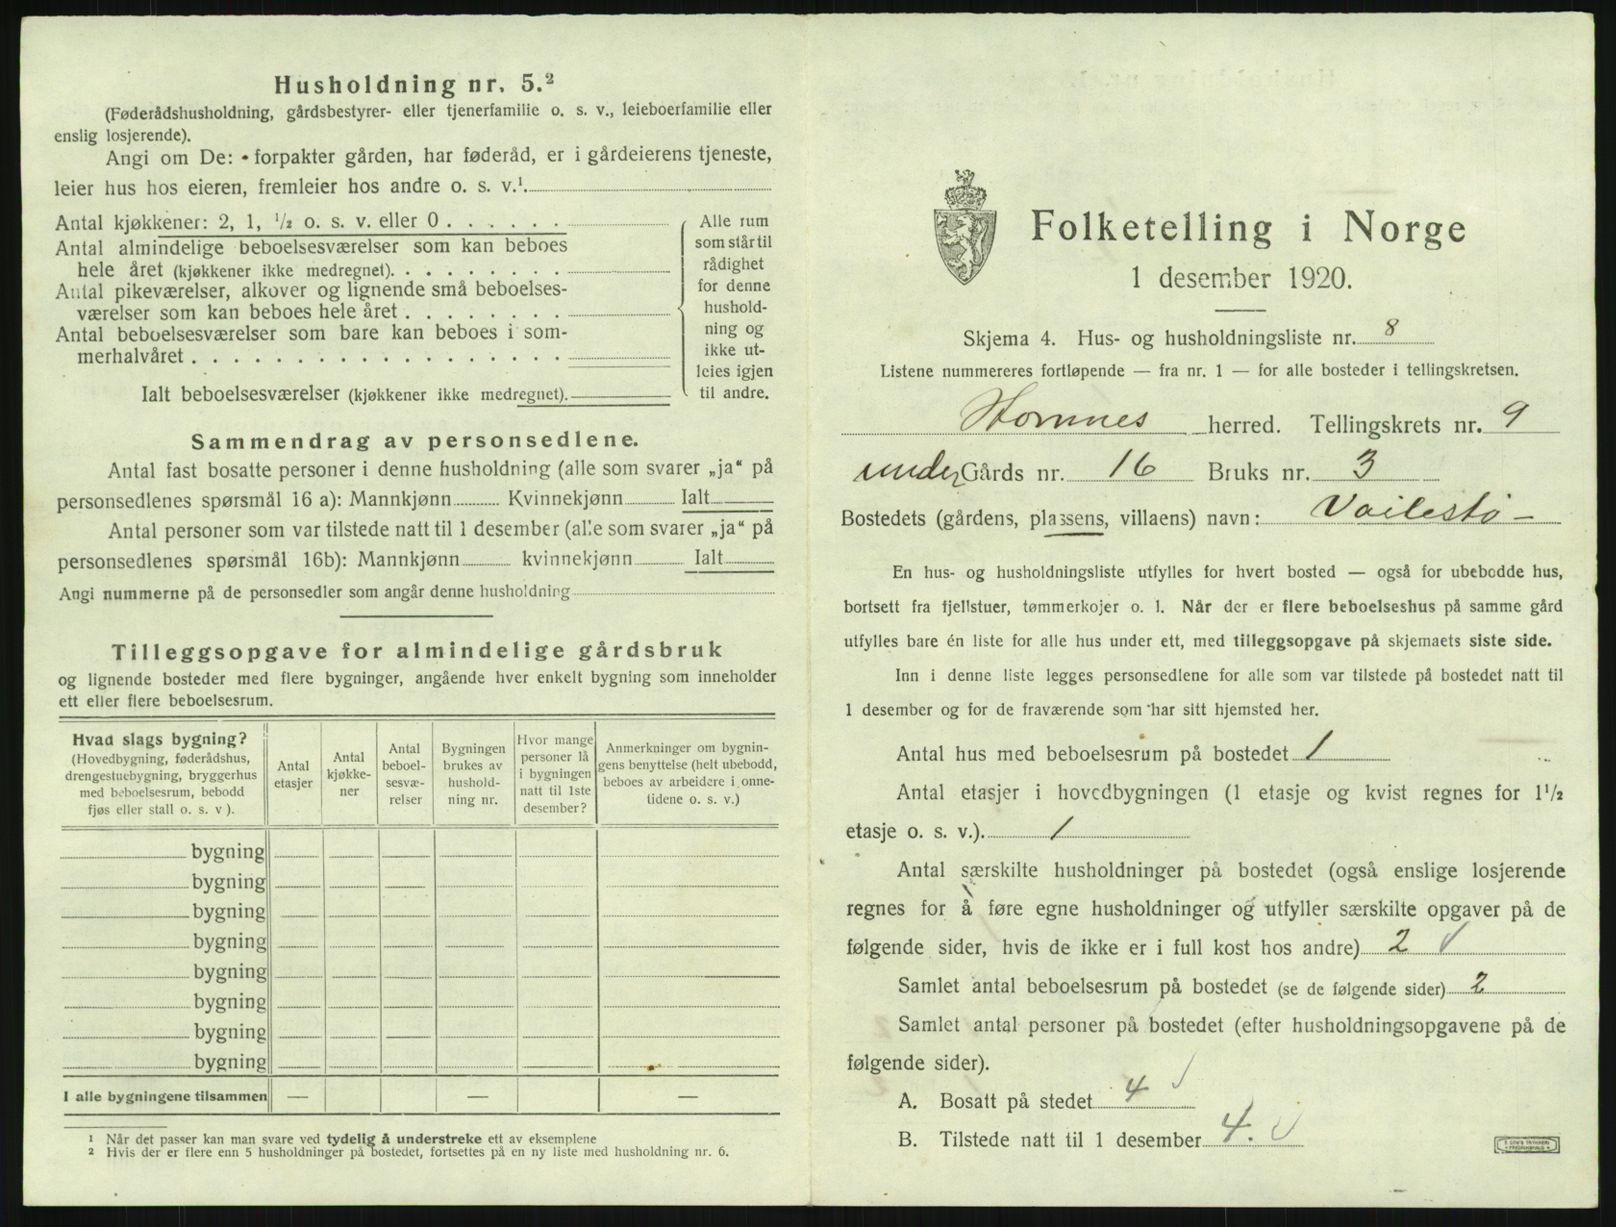 Husholdning nr. 5.²
(Føderådshusholdning, gårdsbestyrer- eller tjenerfamilie o. s. v., leieboerfamilie eller
enslig losjerende).
Angi om De: forpakter gården, har føderåd, er i gårdeierens tjeneste,
leier hus hos eieren, fremleier hos andre o. s. v.¹
Antal kjøkkener: 2, 1, ½ o. s. v. eller 0
Antal almindelige beboelsesværelser som kan beboes
hele året (kjøkkener ikke medregnet).
Antal pikeværelser, alkover og lignende små beboelses-
værelser som kan beboes hele året
Antal beboelsesværelser som bare kan beboes i som-
merhalvåret
Ialt beboelsesværelser (kjøkkener ikke medregnet).
Alle rum
som står til
rådighet
for denne
hushold-
ning og
ikke ut-
leies igjen
til andre.
Sammendrag av personsedlene.
Antal fast bosatte personer i denne husholdning (alle som svarer „ja“ på
personsedlenes spørsmål 16 a): Mannkjønn Kvinnekjønn Ialt
Antal personer som var tilstede natt til 1 desember (alle som svarer „ja“ på
personsedlenes spørsmål 16b): Mannkjønn kvinnekjønn Ialt
Angi nummerne på de personsedler som angår denne husholdning
Tilleggsopgave for almindelige gårdsbruk
og lignende bosteder med flere bygninger, angående hver enkelt bygning som inneholder
ett eller flere beboelsesrum.
Hvad slags bygning?
(Hovedbygning, føderådshus,
drengestuebygning, bryggerhus
med beboelsesrum, bebodd
fjøs eller stall o. s. v ).
Antal
etasjer
Antal
kjøkke-
ner
Antal
beboel-
sesvæ-
relser
Bygningen
brukes av
hushold-
ning nr.
Hvor mange
personer lå
i bygningen
natt til 1ste
desember?
Anmerkninger om bygnin-
gens benyttelse (helt ubebodd,
beboes av arbeidere i onne-
tidene o. s. v.)
bygning
bygning
bygning
bygning
bygning
bygning
bygning
bygning
I alle bygningene tilsammen — — —
¹ Når det passer kan man svare ved tydelig å understreke ett av eksemplene
² Hvis der er flere enn 5 husholdninger på bostedet, fortsettes på en ny liste med husholdning nr. 6.
Folketelling i Norge
1 desember 1920.
Skjema 4. Hus- og husholdningsliste nr. 8
Listene nummereres fortløpende — fra nr. 1 — for alle bosteder i tellingskretsen.
Hornnes herred. Tellingskrets nr. 9
under Gårds nr. 16 Bruks nr. 3
Bostedets (gårdens, plassens, villaens) navn: Vailestø -
En hus- og husholdningsliste utfylles for hvert bosted — også for ubebodde hus,
bortsett fra fjellstuer, tømmerkojer o. l. Når der er flere beboelseshus på samme gård
utfylles bare én liste for alle hus under ett, med tilleggsopgave på skjemaets siste side.
Inn i denne liste legges personsedlene for alle som var tilstede på bostedet natt til
1 desember og for de fraværende som har sitt hjemsted her.
Antal hus med beboelsesrum på bostedet 1
Antal etasjer i hovedbygningen (1 etasje og kvist regnes for 1½
etasje o. s. v.). 1
Antal særskilte husholdninger på bostedet (også enslige losjerende
regnes for å føre egne husholdninger og utfyller særskilte opgaver på de
følgende sider, hvis de ikke er i full kost hos andre) 2 ✓
Samlet antal beboelsesrum på bostedet (se de følgende sider) 2
Samlet antal personer på bostedet (efter husholdningsopgavene på de
følgende sider).
A. Bosatt på stedet 4 ✓
B. Tilstede natt til 1 desember 4. ✓